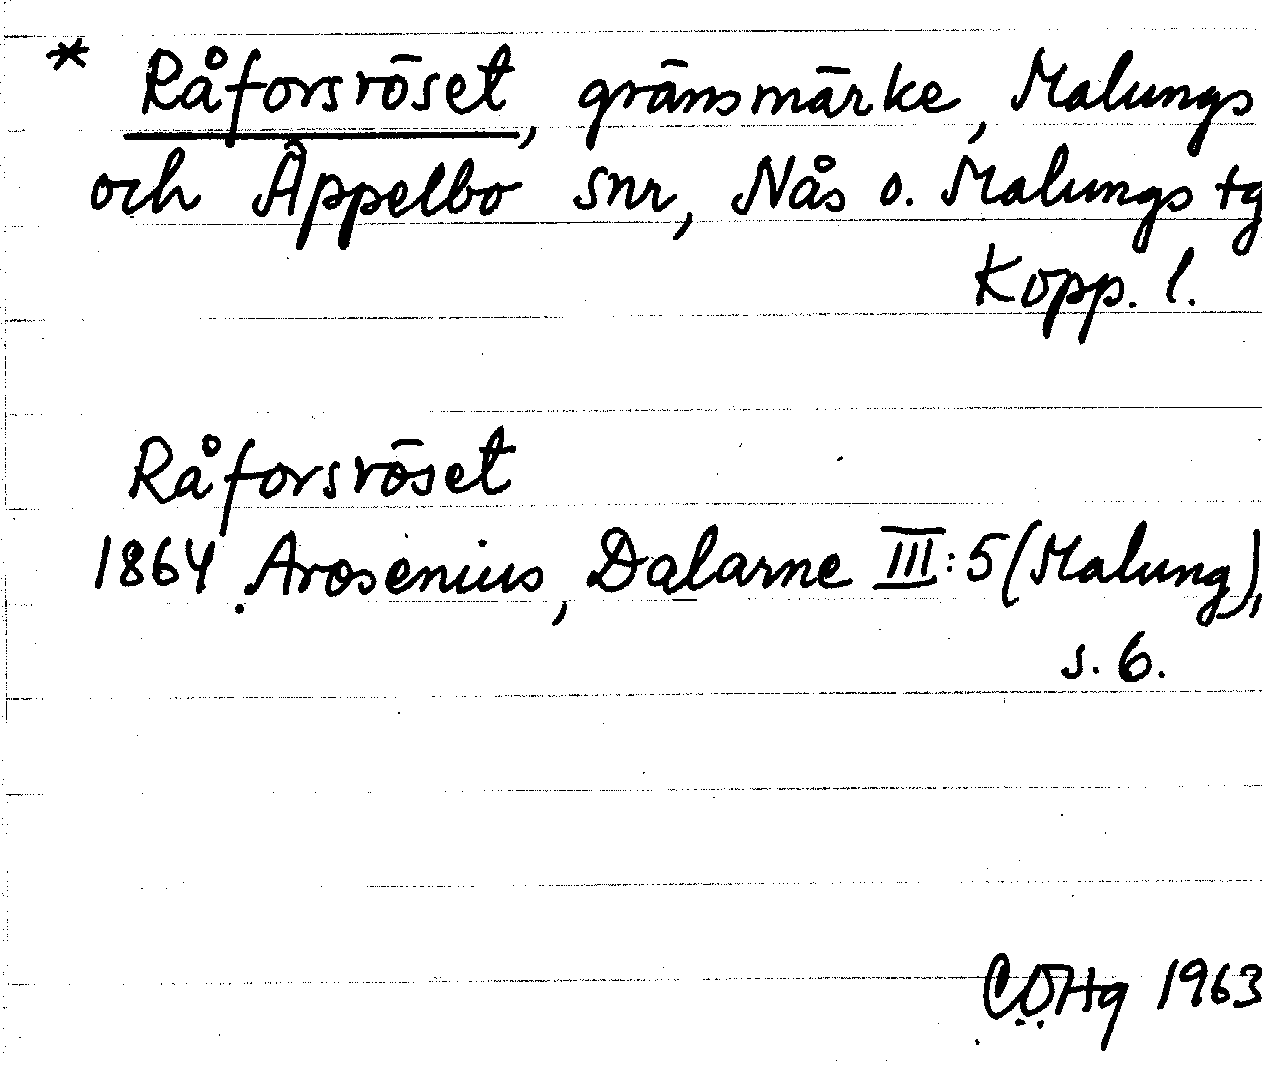 * Råforsröset, gränsmärke, Malungs
och Äppelbo snr, Nås o. Malungs tg
Kopp. l.
Råforsröset
1864 Arosenius, Dalarne III:5 (Malung),
s. 6.
CÖHg 1963